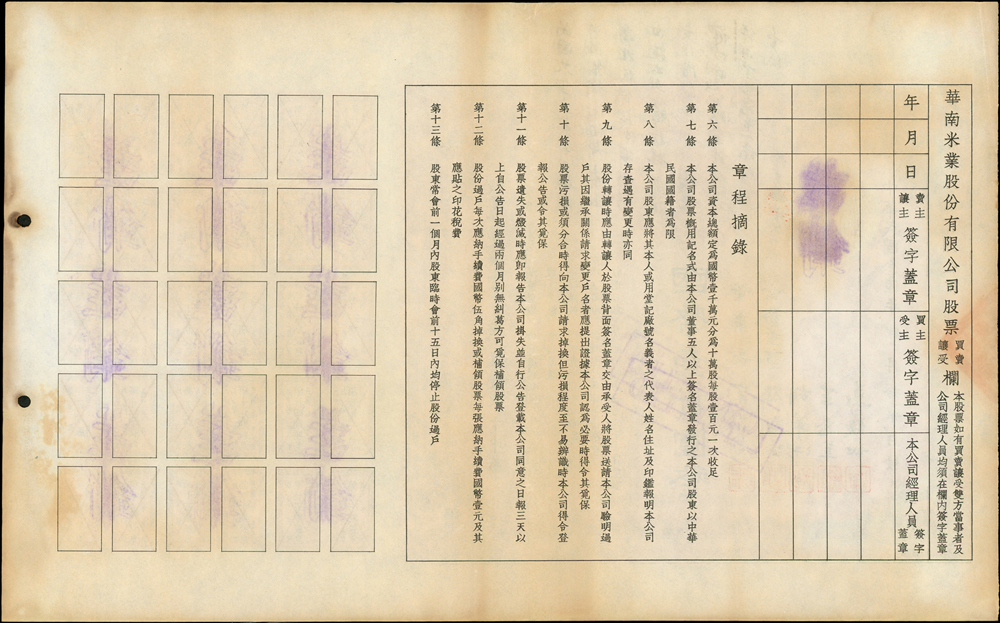 華南米業股份有限公司股票 買賣讓受欄
本股票如有買賣讓受雙方當事者及
公司經理人員均須在欄內簽字蓋章
年 月 日
賣主讓主 簽字蓋章
買主受主 簽字蓋章
本公司經理人員 簽字蓋章
章程摘錄
第六條 本公司資本總額定爲國幣壹千萬元分爲十萬股每股壹百元一次收足
第七條 本公司股票概用記名式由本公司董事五人以上簽名蓋章發行之本公司股東以中華
民國國籍者爲限
第八條 本公司股東應將其本人或用堂記廠號名義者之代表人姓名住址及印鑑報明本公司
存查遇有變更時亦同
第九條 股份轉讓時應由轉讓人於股票背面簽名蓋章交由承受人將股票送請本公司驗明過
戶其因繼承關係請求變更戶名者應提出證據本公司認爲必要時得令其覓保
第十條 股票污損或須分合時得向本公司請求掉換但污損程度至不易辨識時本公司得令登
報公告或令其覓保
第十一條 股票遺失或燬滅時應即報告本公司掛失並自行公告登載本公司同意之日報三天以
上自公告日起經過兩個月別無糾葛方可覓保補領股票
第十二條 股份過戶每次應納手續費國幣伍角掉換或補領股票每張應納手續費國幣壹元及其
應貼之印花稅費
第十三條 股東常會前一個月內股東臨時會前十五日內均停止股份過戶